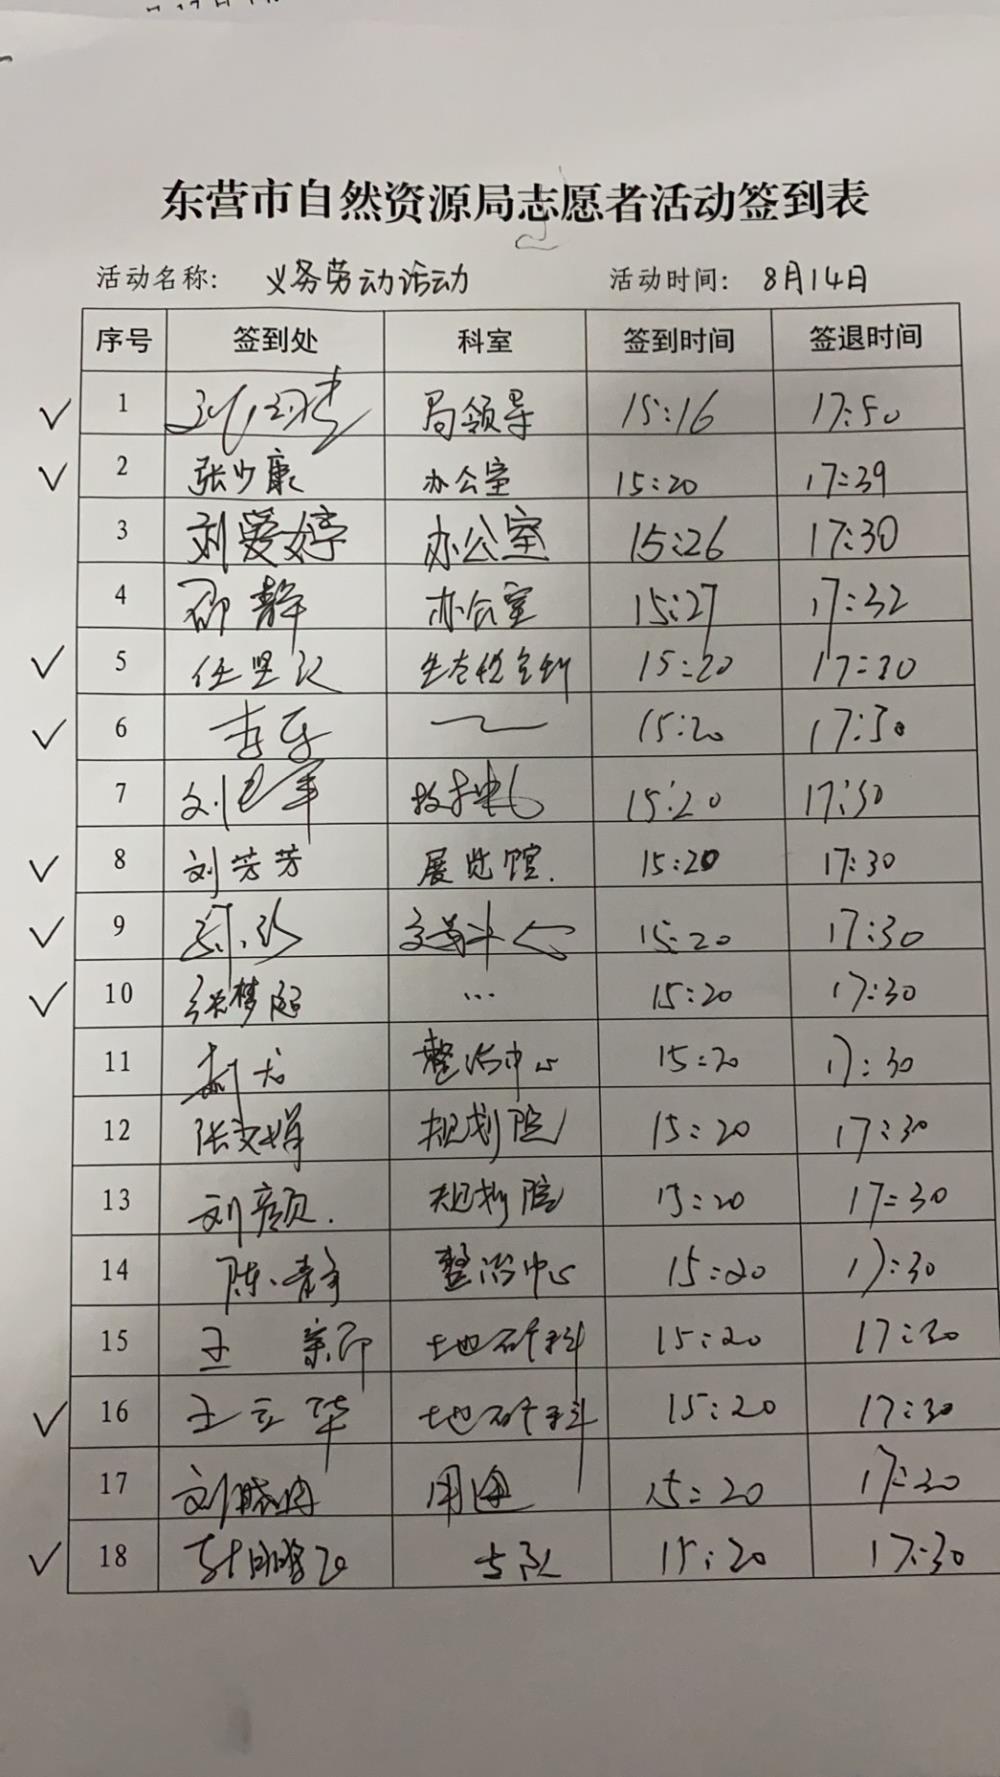 东营市自然资源局志愿者活动签到表
活动名称: 义务劳动活动 活动时间: 8月14日
序号 签到处 科室 签到时间 签退时间
1 局领导 15:16 17:50
2 张少康 办公室 15:20 17:39
3 刘爱婷 办公室 15:26 17:30
4 邵静 办公室 15:27 17:32
5 15:20 17:30
6 15:20 17:30
7 15:20 17:30
8 刘芳芳 展览馆. 15:20 17:30
9 15:20 17:30
10 张梦 ... 15:20 17:30
11 整治中心 15:20 17:30
12 张文娟 规划院 15:20 17:30
13 刘颜. 规划院 15:20 17:30
14 陈静 整治中心 15:20 17:30
15 王 地矿科 15:20 17:30
16 王立华 地矿科 15:20 17:30
17 刘 用海 15:20 17:30
18 15:20 17:30